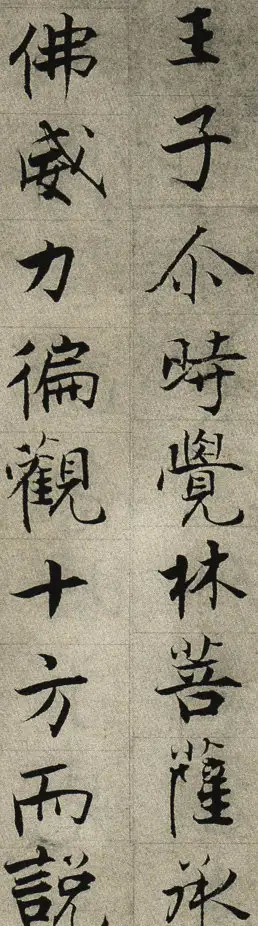 王子尒時覺林菩薩承
佛威力徧觀十方而說